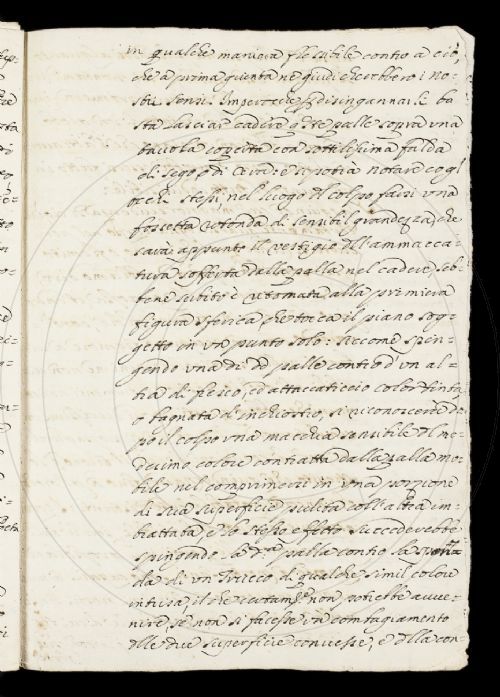 in qualche maniera flessibile contro a ciò,
che a prima giunta ne giudicherebbero i no-
stri sensi. Imperocchè p disingannarle ba-
sta lasciar cadere q.ste palle sopra una
tavola coperta con sottilissima falda
di sego, o di cera: e si potrà notare cogl
occhi stessi, nel luogo del colpo farsi una
fossetta rotonda di sensibil grandezza, che
sarà appunto il vestigio dell'ammacca-
tura sofferta dalla palla nel cadere, seb-
bene subito è ritornata alla primiera
figura sferica, che tocca il piano sog-
getto in un punto solo: siccome spin-
gendo una di dd. palle contro d'un al-
tra di fresco, ed attaccaticcio color tinta,
o bagnata d'inchiostro, si riconoscerà do
po il colpo una macchia sensibile del me-
desimo colore contratta dalla palla mo-
bile nel comprimersi in una porzione
di sua superficie pulita coll'altra im-
brattata: e lo stesso effetto succederebbe
spingendo la palla contro la sponda
da di un Trucco di qualche simil colore
intrisa, il che certam.te non potrebbe avve-
nire, se non si facesse un combagiamento
delle due superficie convesse, e della con-